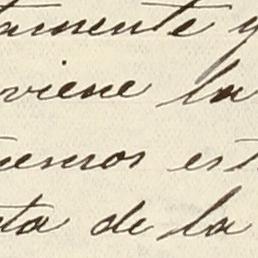 amente y
viene la
emos est
ta de la